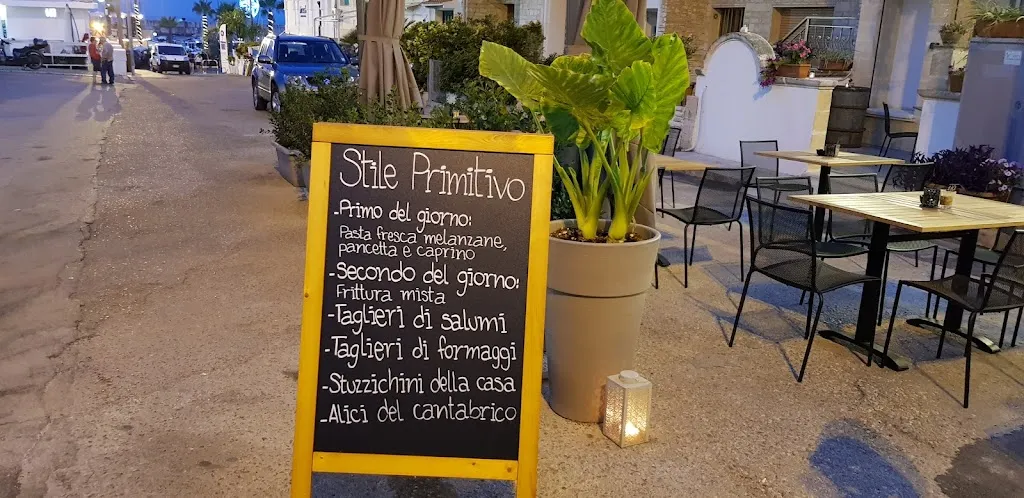 Stile Primitivo
-Primo del giorno:
Pasta fresca melanzane,
pancetta e caprino
-Secondo del giorno:
Frittura mista
-Taglieri di salumi
-Taglieri di formaggi
-Stuzzichini della casa
-Alici del cantabrico